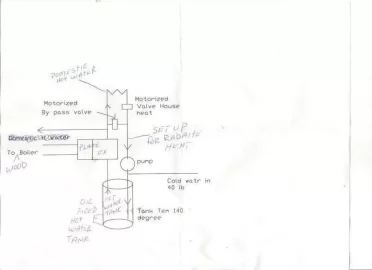 DOMESTIC
HOT WATER
Motorized
By pass valve
Motorized
Valve House
heat
SET UP
FOR RADAITE
HEAT
PLATE
EX
To Boiler
WOOD
pump
Cold watr in
40 lb
OIL
FIRED
HOT
WATER
TANK
HOT
WATER
TANK
Tank Tem 140
degree